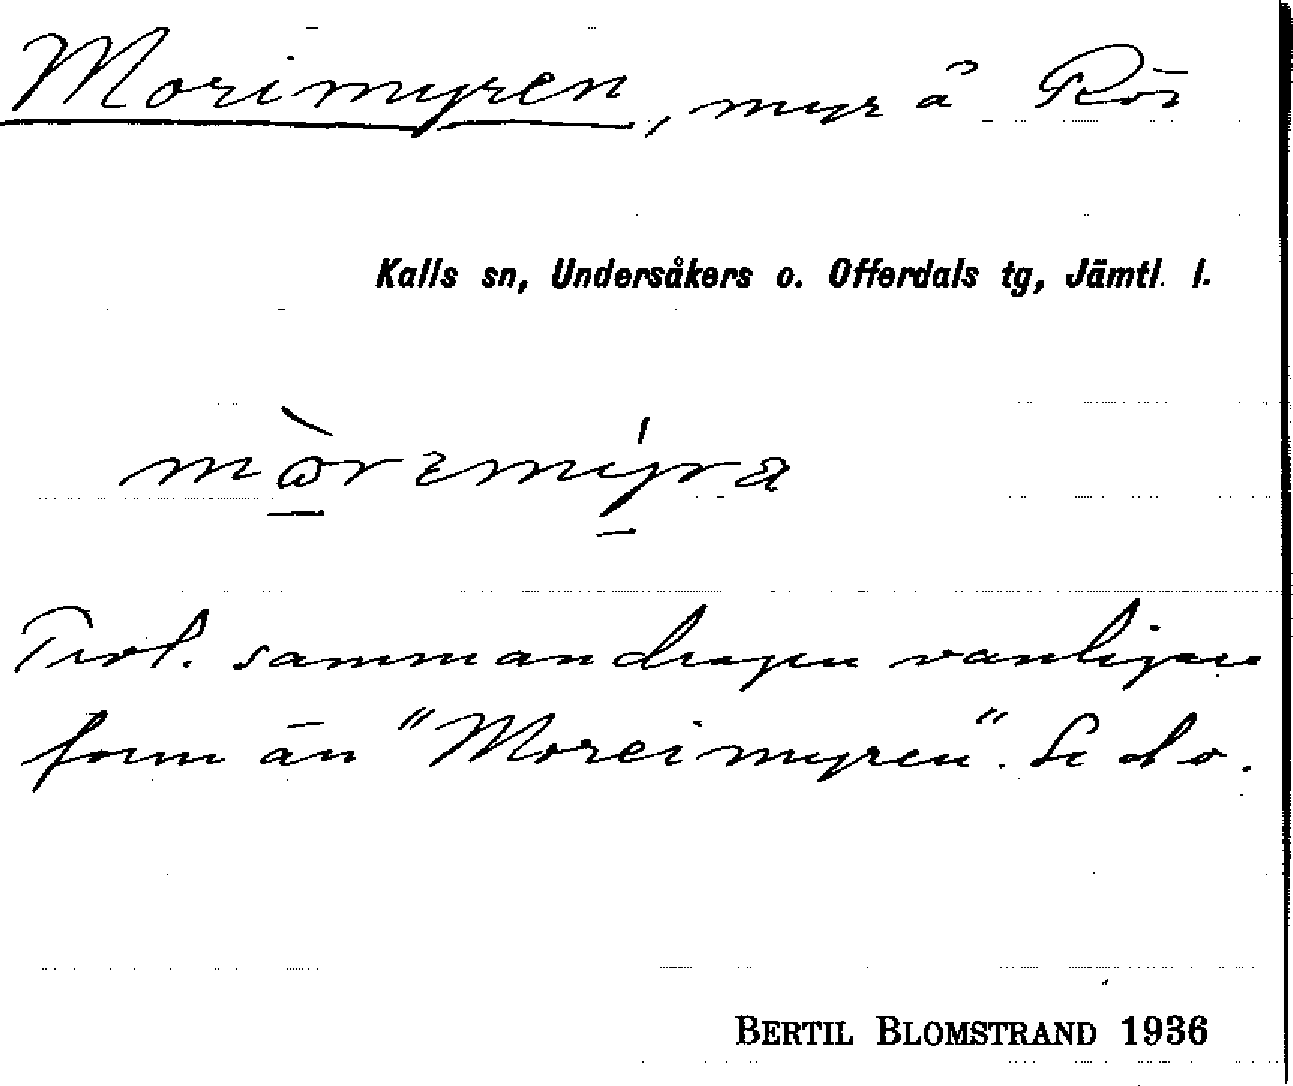 Morimyren, myr å Rör
Kalls sn, Undersåkers o. Offerdals tg, Jämtl. l.
mɷ̀remýra
Trol. sammandragen vanligare
form än "Moreimyren". Se do.
BERTIL BLOMSTRAND 1936